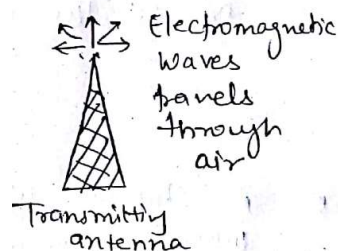 Electromagnetic
waves
travels
through
air
Transmitting
antenna